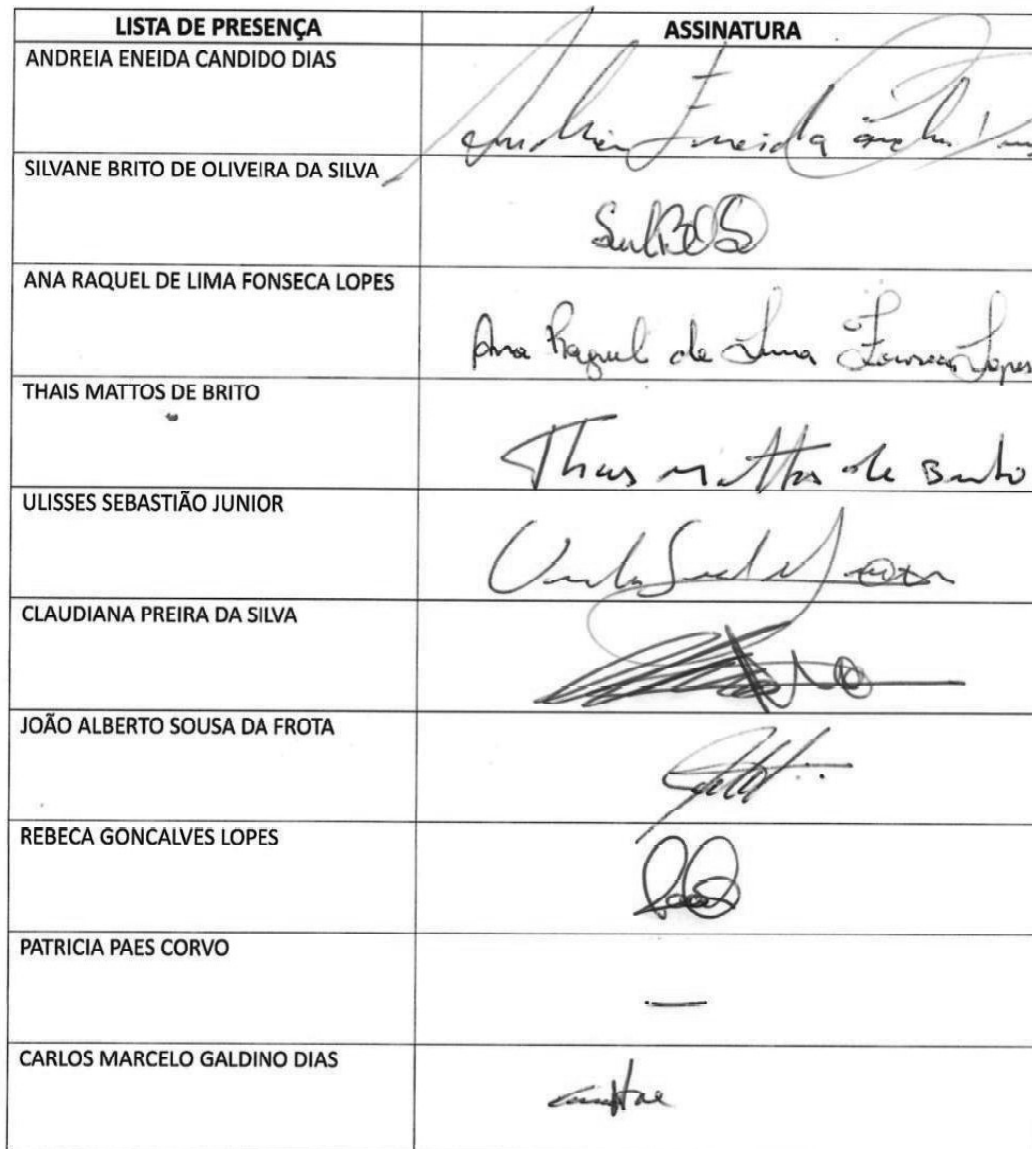 LISTA DE PRESENÇA ASSINATURA
ANDREIA ENEIDA CANDIDO DIAS
Eneida
SILVANE BRITO DE OLIVEIRA DA SILVA
ANA RAQUEL DE LIMA FONSECA LOPES
Ana Raquel de Lima Fonseca Lopes
THAIS MATTOS DE BRITO
Thais Mattos de Brito
ULISSES SEBASTIÃO JUNIOR
CLAUDIANA PREIRA DA SILVA
JOÃO ALBERTO SOUSA DA FROTA
REBECA GONCALVES LOPES
PATRICIA PAES CORVO
—
CARLOS MARCELO GALDINO DIAS